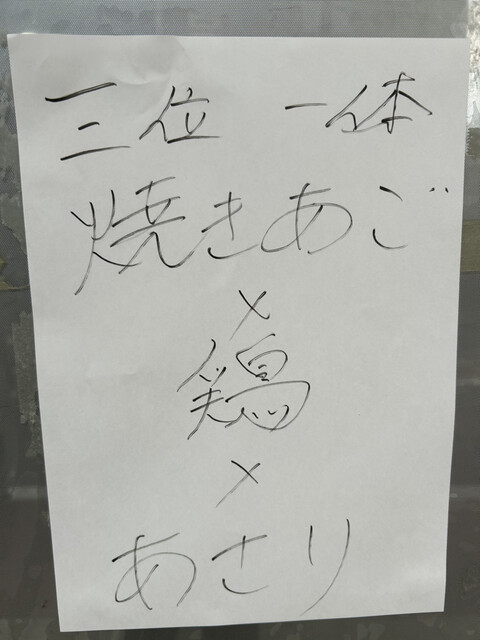 三位一体
焼きあご
×
鶏
×
あさり